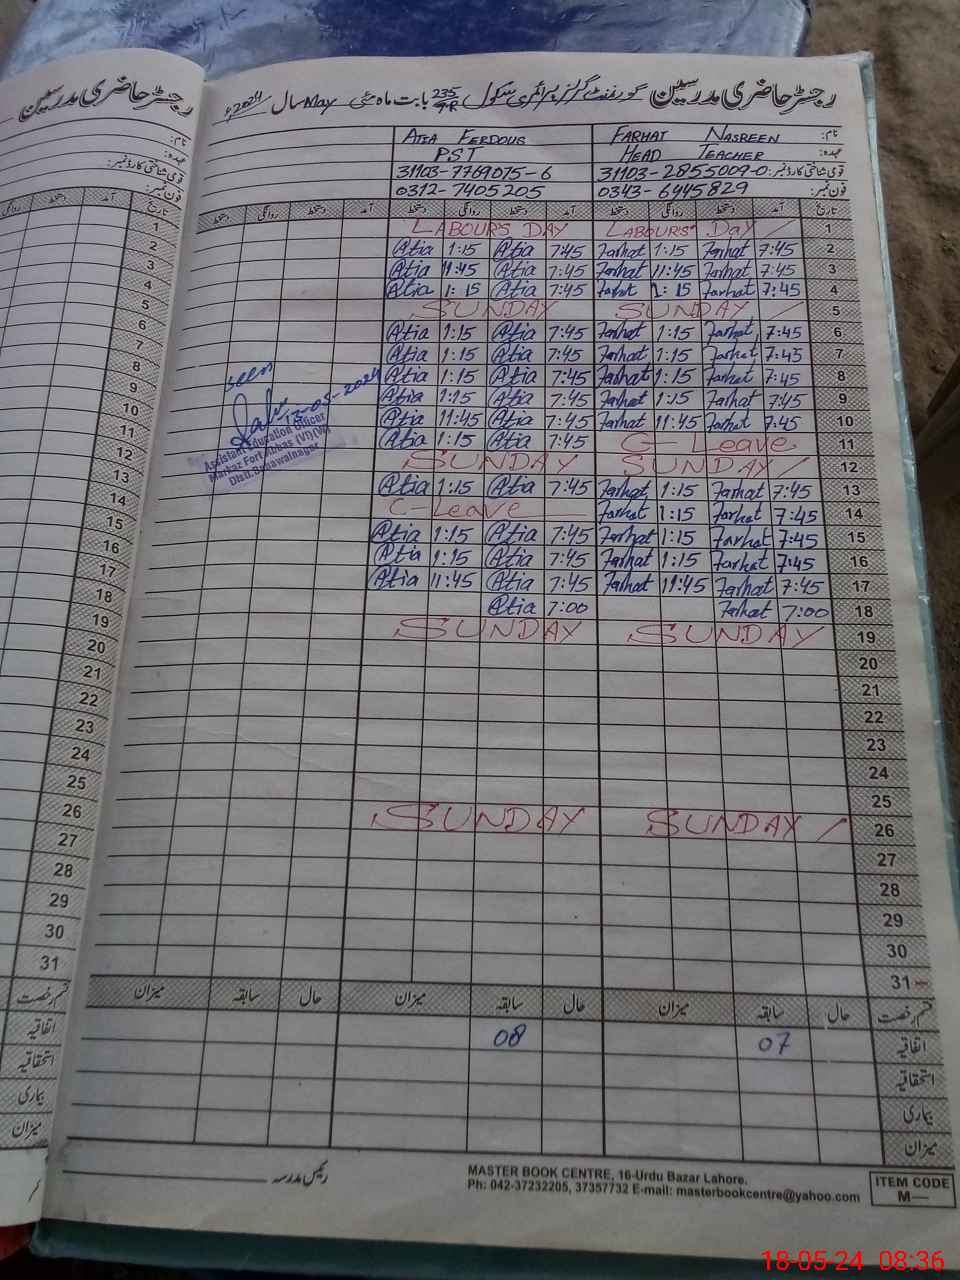 رجسٹر حاضری مدرسین گورنمنٹ گرلز پرائمری سکول 235/9R بابت ماہ مئی May سال 2024ء
رجسٹر حاضری مدرسین
نام: FARHAT NASREEN ATIA FERDOUS
عہدہ: HEAD TEACHER PST
قومی شناختی کارڈ نمبر: 31103-2855009-0 31103-7769075-6
فون نمبر: 0343-6945829 0312-7405205
تاریخ آمد دستخط روانگی دستخط آمد دستخط روانگی دستخط آمد دستخط روانگی دستخط
1 LABOUR'S Day LABOUR'S DAY
2 7:45 Farhat 1:15 Farhat 7:45 Atia 1:15 Atia
3 7:45 Farhat 11:45 Farhat 7:45 Atia 11:45 Atia
4 7:45 Farhat 1:15 Farhat 7:45 Atia 1:15 Atia
5 SUNDAY SUNDAY
6 7:45 Farhat 1:15 Farhat 7:45 Atia 1:15 Atia
7 7:45 Farhat 1:15 Farhat 7:45 Atia 1:15 Atia
8 7:45 Farhat 1:15 Farhat 7:45 Atia 1:15 Atia
9 7:45 Farhat 1:15 Farhat 7:45 Atia 1:15 Atia
10 7:45 Farhat 11:45 Farhat 7:45 Atia 11:45 Atia
11 C-Leave 7:45 Atia 1:15 Atia
12 SUNDAY SUNDAY
13 7:45 Farhat 1:15 Farhat 7:45 Atia 1:15 Atia
14 7:45 Farhat 1:15 Farhat C-Leave
15 7:45 Farhat 1:15 Farhat 7:45 Atia 1:15 Atia
16 7:45 Farhat 1:15 Farhat 7:45 Atia 1:15 Atia
17 7:45 Farhat 11:45 Farhat 7:45 Atia 11:45 Atia
18 7:00 Farhat 7:00 Atia
19 SUNDAY SUNDAY
20
21
22
23
24
25
26 SUNDAY SUNDAY
27
28
29
30
31
seen
13-05-2024
Assistant Education Officer
Markaz Fort Abbas (VI)(W)
Distt. Bahawalnagar
قسم رخصت حال سابقہ میزان حال سابقہ میزان حال سابقہ میزان
اتفاقیہ 07 08
استحقاقیہ
بیماری
میزان
رئیس مدرسہ
MASTER BOOK CENTRE, 16-Urdu Bazar Lahore.
Ph: 042-37232205, 37357732 E-mail: masterbookcentre@yahoo.com
ITEM CODE
M—
نام:
عہدہ:
قومی شناختی کارڈ نمبر:
فون نمبر:
تاریخ آمد دستخط روانگی
1
2
3
4
5
6
7
8
9
10
11
12
13
14
15
16
17
18
19
20
21
22
23
24
25
26
27
28
29
30
31
قسم رخصت
اتفاقیہ
استحقاقیہ
بیماری
میزان
18-05-24 08:36